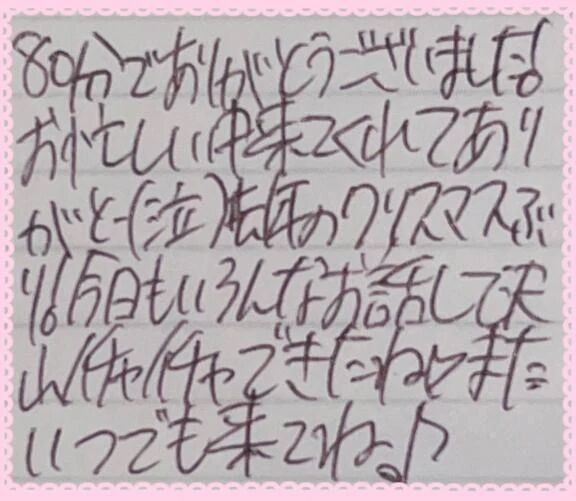 80分でありがとうございました!
お忙しい中来てくれてあり
がと-(泣)去年のクリスマスぶ
り!今日もいろんなお話して沢
山イチャイチャできたね♡また
いつでも来てね♪